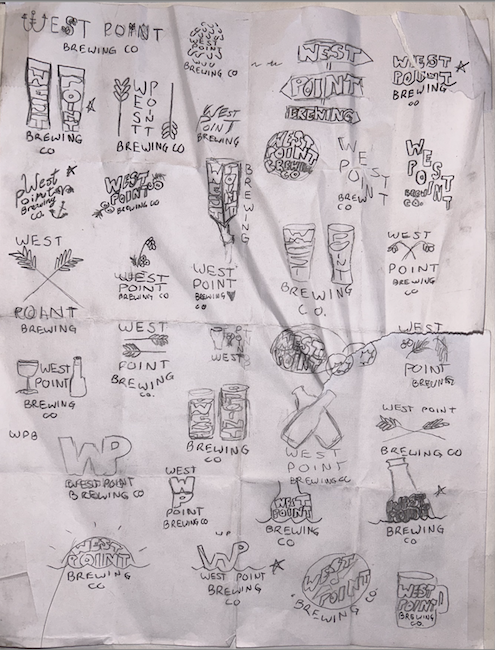 WEST POINT
BREWING CO
WEST
POINT
BREWING CO
WEST
POINT
BREWING
WEST
POINT
BREWING
CO
WEST
POINT
BREWING
CO
WEST
POINT
BREWING CO
WEST
OINT
BREWING
CO
WEST
POINT
BREWING
CO
WEST
POINT
BREW
CO
WEST
POINT
BREWING
CO.
West
Point
Brewing
Co.
WEST
POINT
BREWING CO
WEST
POINT
BREWING
WEST
POINT
BREWING
CO.
WEST
POINT
BREWING
CO
WEST
POINT
BREWING
WEST
POINT
BREWING CO
WEST
POINT
BREWING
CO
WEST
POINT
BREWING
CO
WEST
POINT
BREWING
CO.
WEST
WEST
POINT
WEST
POINT
BREWING
WPB
WP
WEST POINT
BREWING CO
WEST
POINT
BREWING
CO
WEST
POINT
BREWING CO
WEST POINT
BREWING CO
WEST
WP
POINT
BREWING CO
WEST
POINT
BREWING
CO
WEST
POINT
BREWING
CO
WEST
POINT
BREWING
CO
WP
WP
WEST POINT
BREWING
CO
WEST
POINT
BREWING CO
WEST
POINT
BREWING
CO.